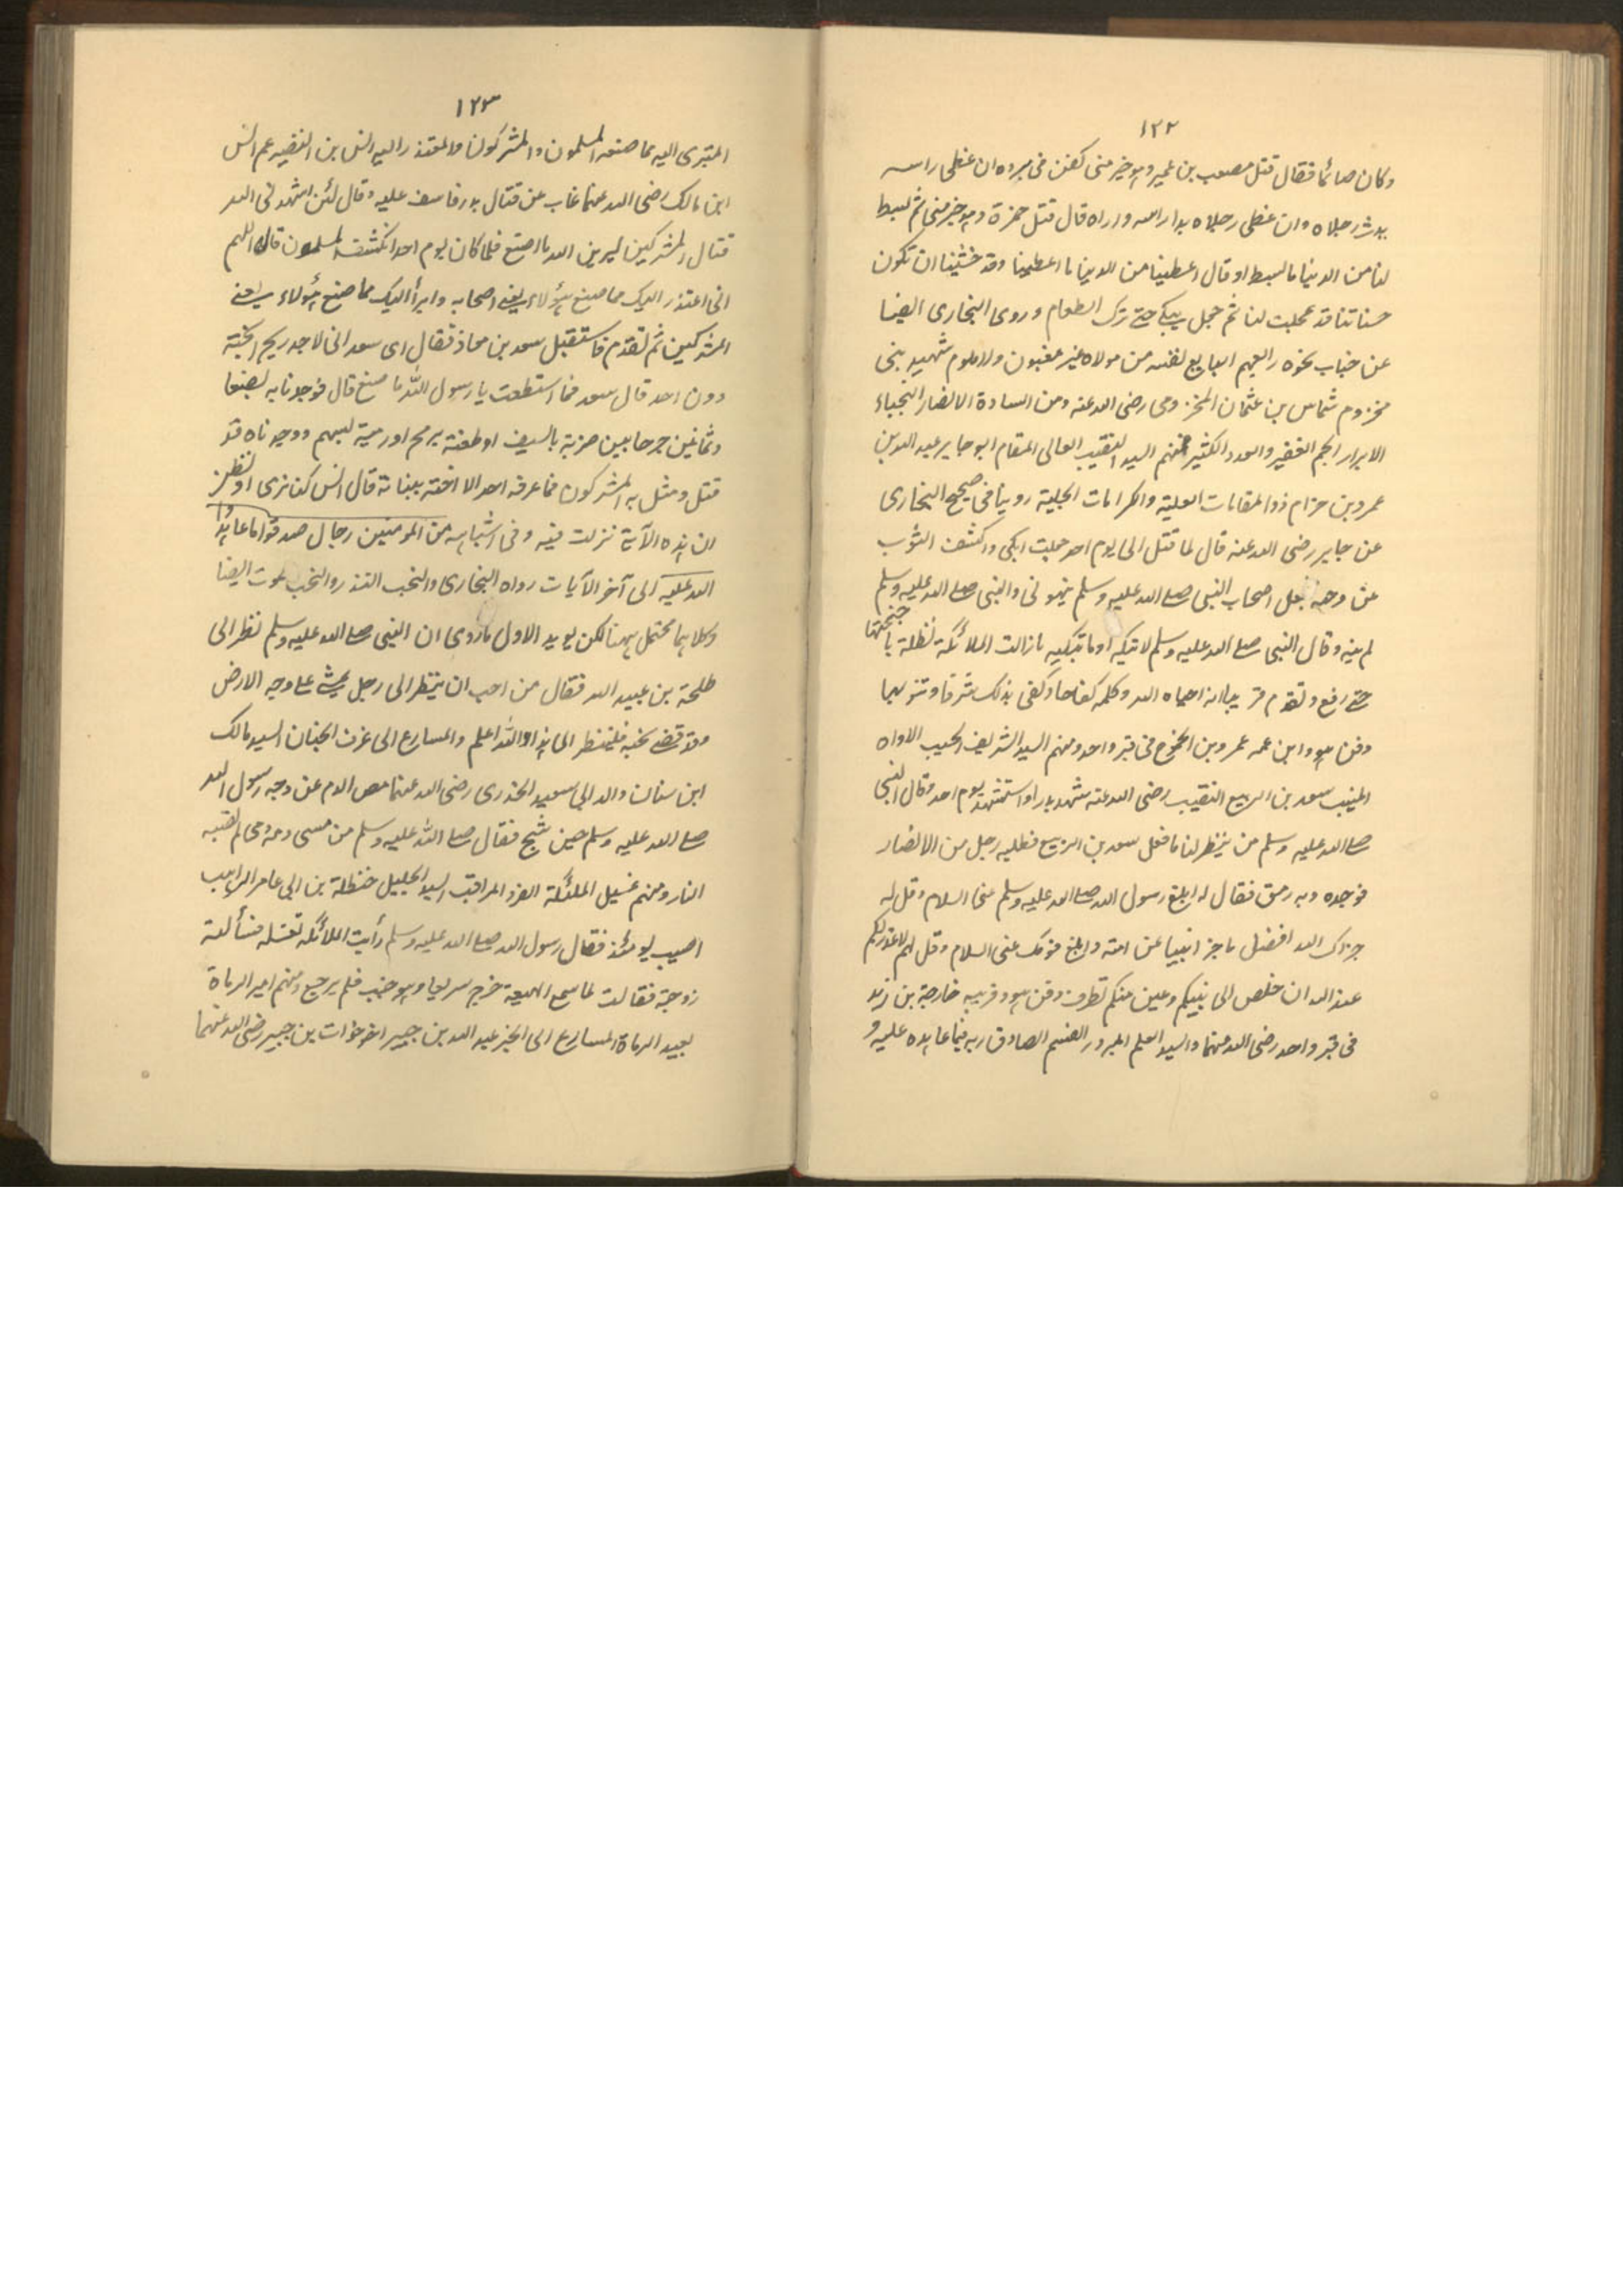 ١٢٢
وكان صائما فقال قتل مصعب بن عمير وهو خير منى كفن فى بروه ان غطى راسه
بدت رجلاه وان غطى رجلاه بدا راسه واراه قال قتل حمزة وهو خير منى ثم بسط
لنا من الدنيا ما بسط او قال اعطينا من الدنيا ما اعطينا وقد خشينا ان تكون
حسناتنا قد عجلت لنا ثم جعل يبكى حتى ترك الطعام وروى البخارى ايضا
عن خباب نحوه رابعهم البايع لنفسه من مولاه غير مغبون ولا ملوم شهيد بنى
مخزوم شماس بن عثمان المخزومى رضى الله عنه ومن السادة الانصار النجباء
الابرار الجم الغفير والعدد الكثير فمنهم السيد النقيب العالى المقام ابو جابر عبد الله بن
عمرو بن حزام ذو المقامات العلية والكرامات الجلية روينا فى صحيح البخارى
عن جابر رضى الله عنه قال لما قتل ابى يوم احد جعلت ابكى واكشف الثوب
عن وجهه فجعل اصحاب النبى صلى الله عليه وسلم ينهونى والنبى صلى الله عليه وسلم
لم ينه وقال النبى صلى الله عليه وسلم لا تبكيه او ما تبكيه ما زالت الملائكة تظله باجنحتها
حتى رفع وتقدم قريبا انه احياه الله وكلمه كفاحا وكفى بذلك شرفا وتنويها
ودفن هو وابن عمه عمرو بن الجموح فى قبر واحد ومنهم السيد الشريف الحبيب الاواه
المنيب سعد بن الربيع النقيب رضى الله عنه شهد بدرا واستشهد يوم احد وقال النبى
صلى الله عليه وسلم من ينظر لنا ما فعل سعد بن الربيع فطلبه رجل من الانصار
فوجده وبه رمق فقال له ابلغ رسول الله صلى الله عليه وسلم منى السلام وقل له
جزاك الله افضل ما جزا نبيا عن امته وابلغ قومك عنى السلام وقل لهم لا عذر لكم
عند الله ان خلص الى نبيكم وعين منكم تطرف ودفن هو وقريبه خارجة بن زيد
فى قبر واحد رضى الله عنهما والسيد العلم المبرور القسم الصادق ربه فيما عاهده عليه و
١٢٣
المتبرى اليه مما صنعه المسلمون والمشركون والمعتذر اليه انس بن النضير عم انس
ابن مالك رضى الله عنهما غاب عن قتال بدر فاسف عليه وقال لئن اشهدنى الله
قتال المشركين ليرين الله ما اصنع فلما كان يوم احد انكشف المسلمون قال اللهم
انى اعتذر اليك مما صنع هؤلاء يعنى اصحابه وابرأ اليك مما صنع هؤلاء يعنى
المشركين ثم تقدم فاستقبل سعد بن معاذ فقال اى سعد انى لاجد ريح الجنة
دون احد قال سعد فما استطعت يا رسول الله ما صنع قال فوجدنا به بضعا
وثمانين جرحا بين ضربة بالسيف او طعنة برمح او رمية بسهم ووجدناه قد
قتل ومثل به المشركون فما عرفه احد الا اخته ببنانه قال انس كنا نرى او نظن
ان هذه الآية نزلت فيه وفى اشباهه من المومنين رجال صدقوا ما عاهدوا
الله عليه الى آخر الآيات رواه البخارى والنحب النذر والنحب الموت ايضا
وكلاهما محتمل ههنا لكن يويد الاول ما روى ان النبى صلى الله عليه وسلم نظر الى
طلحة بن عبيد الله فقال من احب ان ينظر الى رجل يمشى على وجه الارض
وقد قضى نحبه فلينظر الى هذا والله اعلم والمسارع الى غرف الجنان السيد مالك
ابن سنان والد ابى سعيد الخدرى رضى الله عنهما مص الدم عن وجه رسول الله
صلى الله عليه وسلم حين شج فقال صلى الله عليه وسلم من مس دمه دمى لم تصبه
النار ومنهم غسيل الملئكة الفرد المراقب السيد الجليل حنظلة بن ابى عامر الراهب
اصيب يومئذ فقال رسول الله صلى الله عليه وسلم رأيت الملائكة تغسله فسألته
زوجة فقالت لما سمع الهيعة خرج سريعا وهو جنب فلم يرجع ومنهم امير الرماة
بعيد الرماة المسارع الى الخير عبد الله بن جبير اخو خوات بن جبير رضى الله عنهما